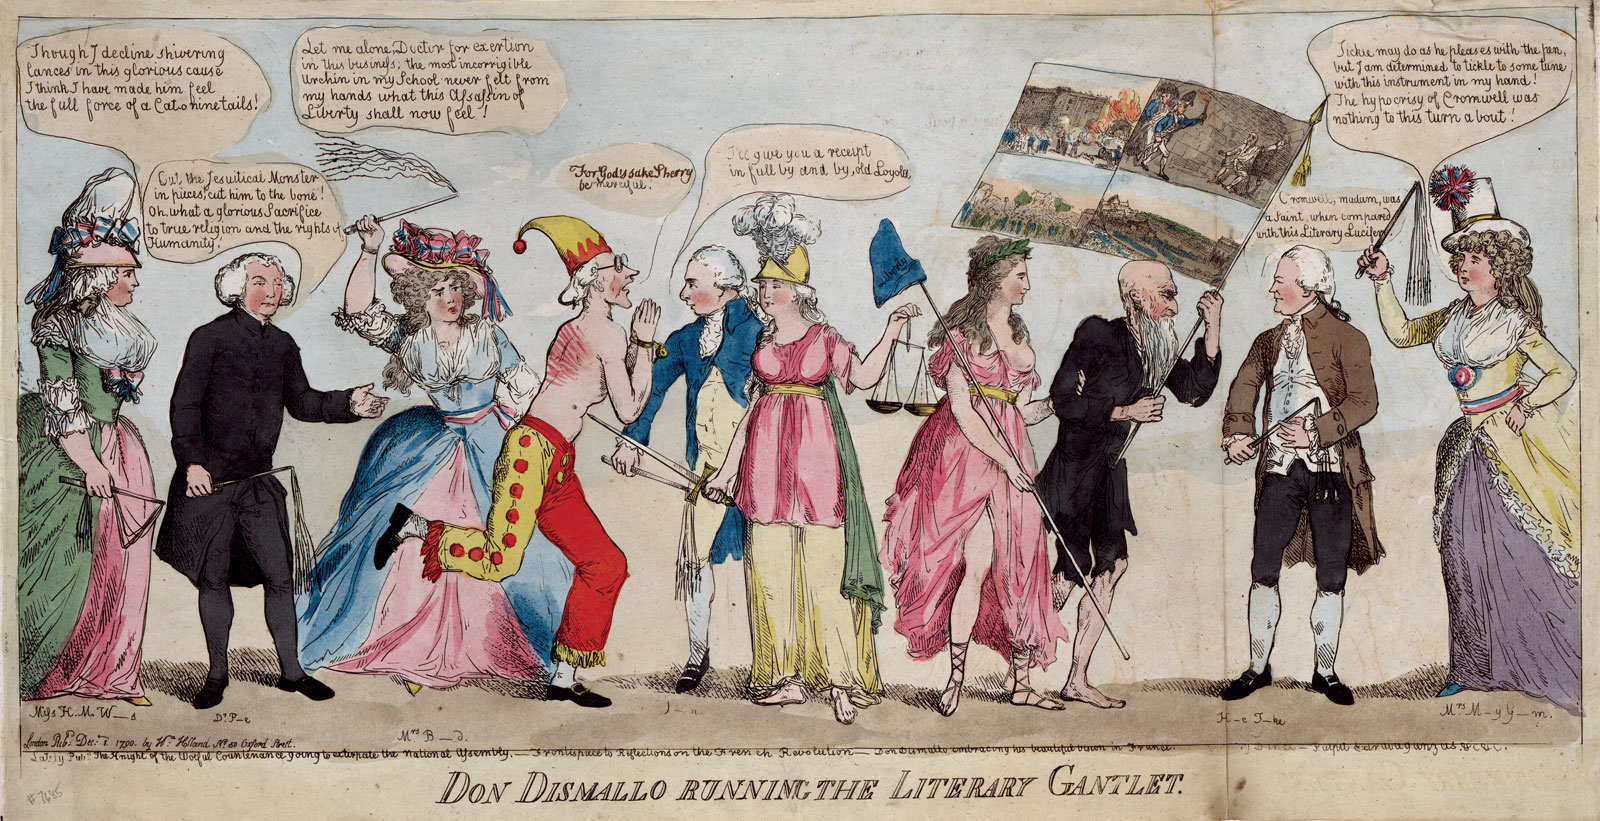 Though I decline shivering
lances in this glorious cause
I think I have made him feel
the full force of a Cat o nine tails!
Cut the Jesuitical Monster
in pieces, cut him to the bone!
Oh, what a glorious Sacrifice
to true religion and the rights of
Humanity!
Let me alone, Doctor for exertion
in this business; the most incorrigible
Urchin in my School never felt from
my hands what this Assassin of
Liberty shall now feel!
For God's sake Sherry
be merciful.
I'll give you a receipt
in full by and by, old Loyola,
Liberty
Cromwell, madam, was
a saint, when compared
with this Literary Lucifer.
Tickle may do as he pleases with the pen,
but I am determined to tickle to some tune
with this instrument in my hand!
The hypocrisy of Cromwell was
nothing to this turn about!
Miss H. M. W—s
Dr. P—e
Mrs B—d.
S—n.
H—e T—ke
Mrs M—y G—m.
London Pub. Dec. 1. 1790. by Wm. Holland No. 50 Oxford Street.
Lately Pub. The Knight of the Woful Countenance going to extirpate the National Assembly. — Frontispiece to Reflections on the French Revolution — Don Dismallo embracing his beautiful vision in France. Pulpit Extravaganzas &c &c.
DON DISMALLO RUNNING THE LITERARY GANTLET.
# 7685